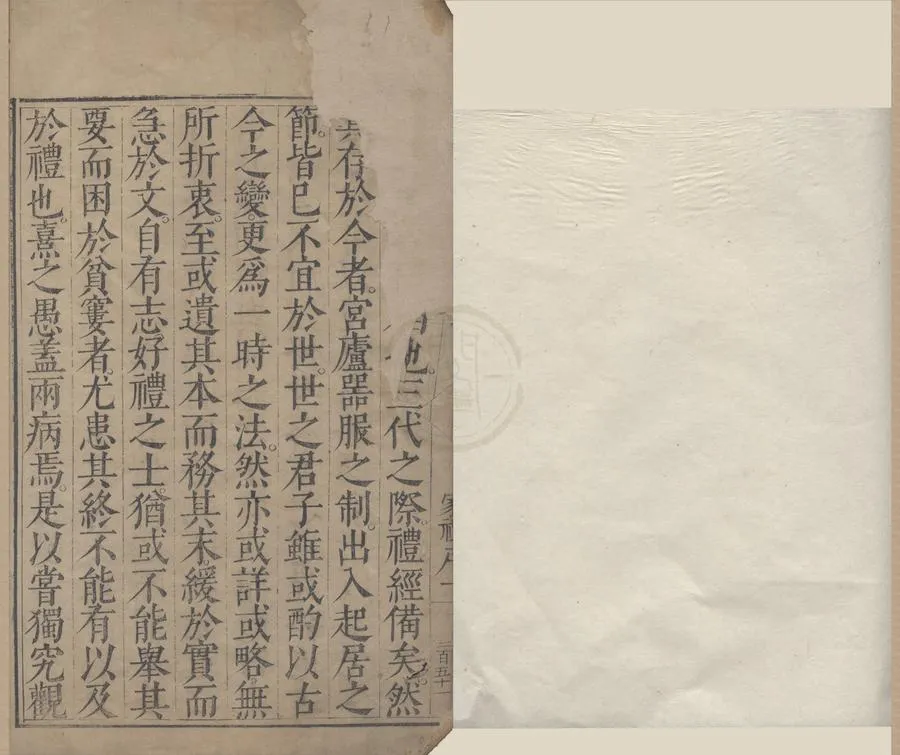 也。三代之際。禮經備矣。然
存於今者。宮廬器服之制。出入起居之
節。皆已不宜於世。世之君子雖或酌以古
今之變。更爲一時之法。然亦或詳或略。無
所折衷。至或遺其本而務其末。緩於實而
急於文。自有志好禮之士。猶或不能舉其
要而困於貧窶者。尤患其終不能有以及
於禮也。熹之愚蓋兩病焉。是以嘗獨究觀